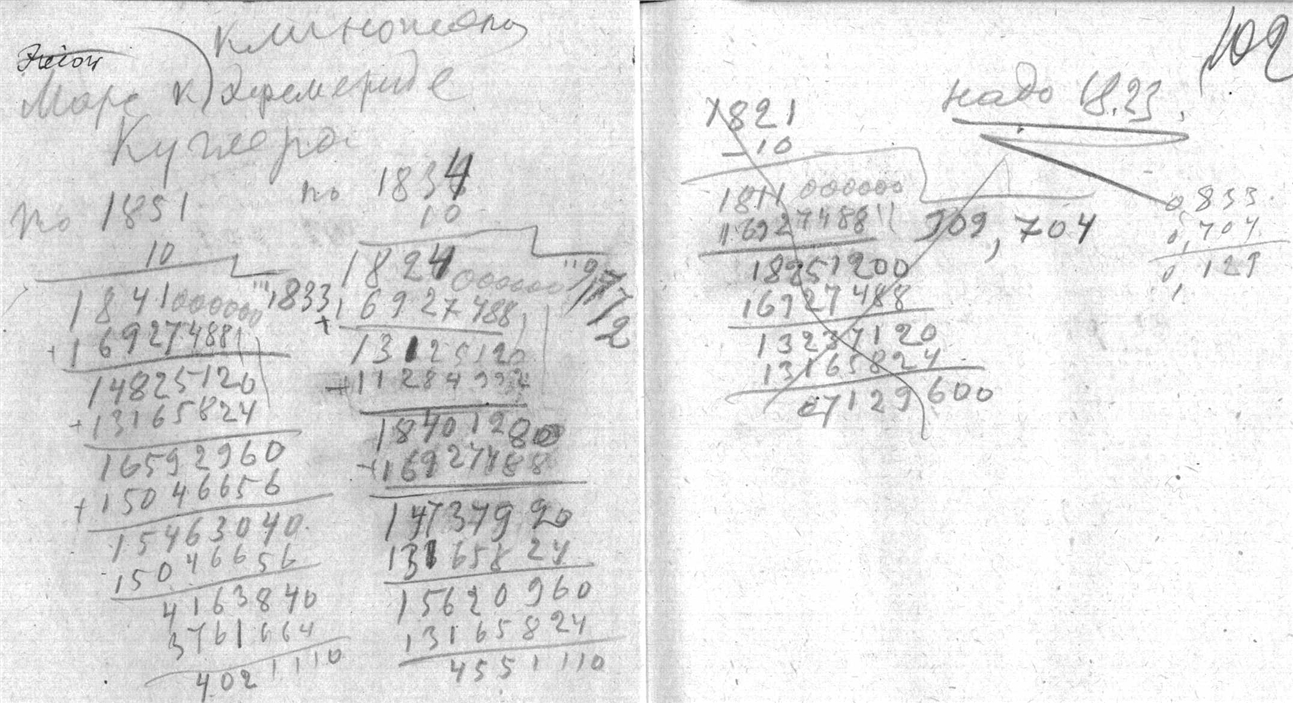 Марс к эфемериде
Куглера
по 1851
10
1841000000
16927488
14825120
13165824
16592960
15046656
15463040
15046656
4163840
3761664
4021110
"1833
по 1834
10
1824000000
16927488
13125120
11284992
18401280
16927488
14737990
13165824
15620960
13165824
4551110
"9772
102
надо 18.23.
1821
-10
1811000000
16927488
109,704
18251200
16927488
13237120
13165824
07129600
0,833
0,704
0,129